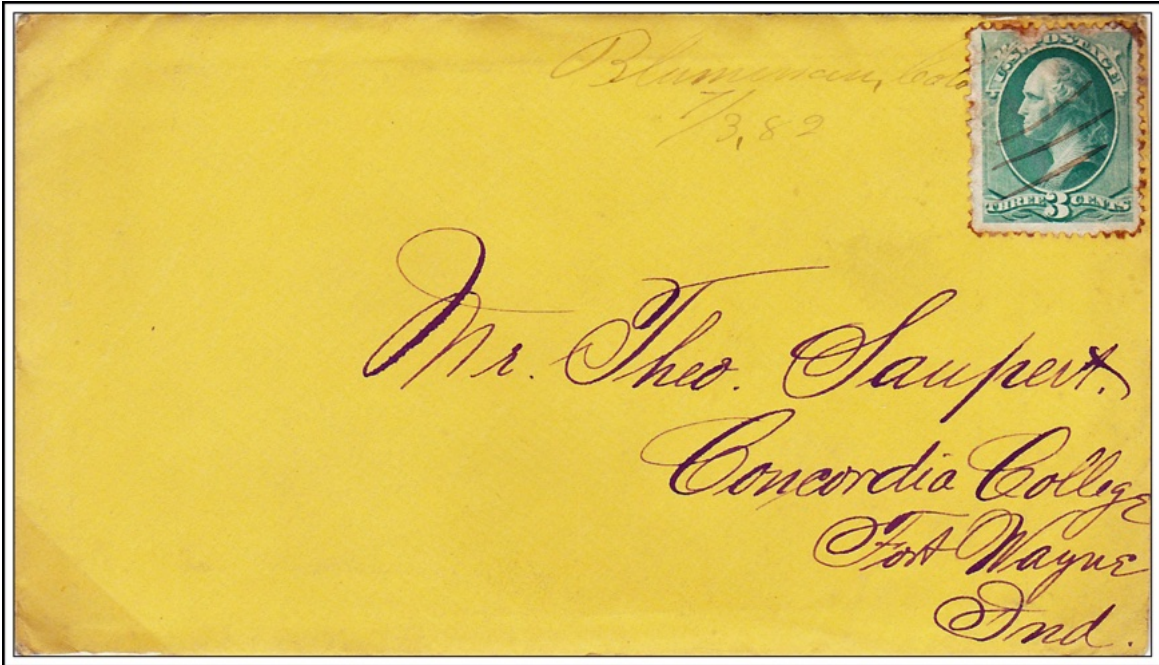 Colo
7/3,82
U.S. POSTAGE
THREE 3 CENTS
Mr. Theo. Saupert.
Concordia College
Fort Wayne
Ind.